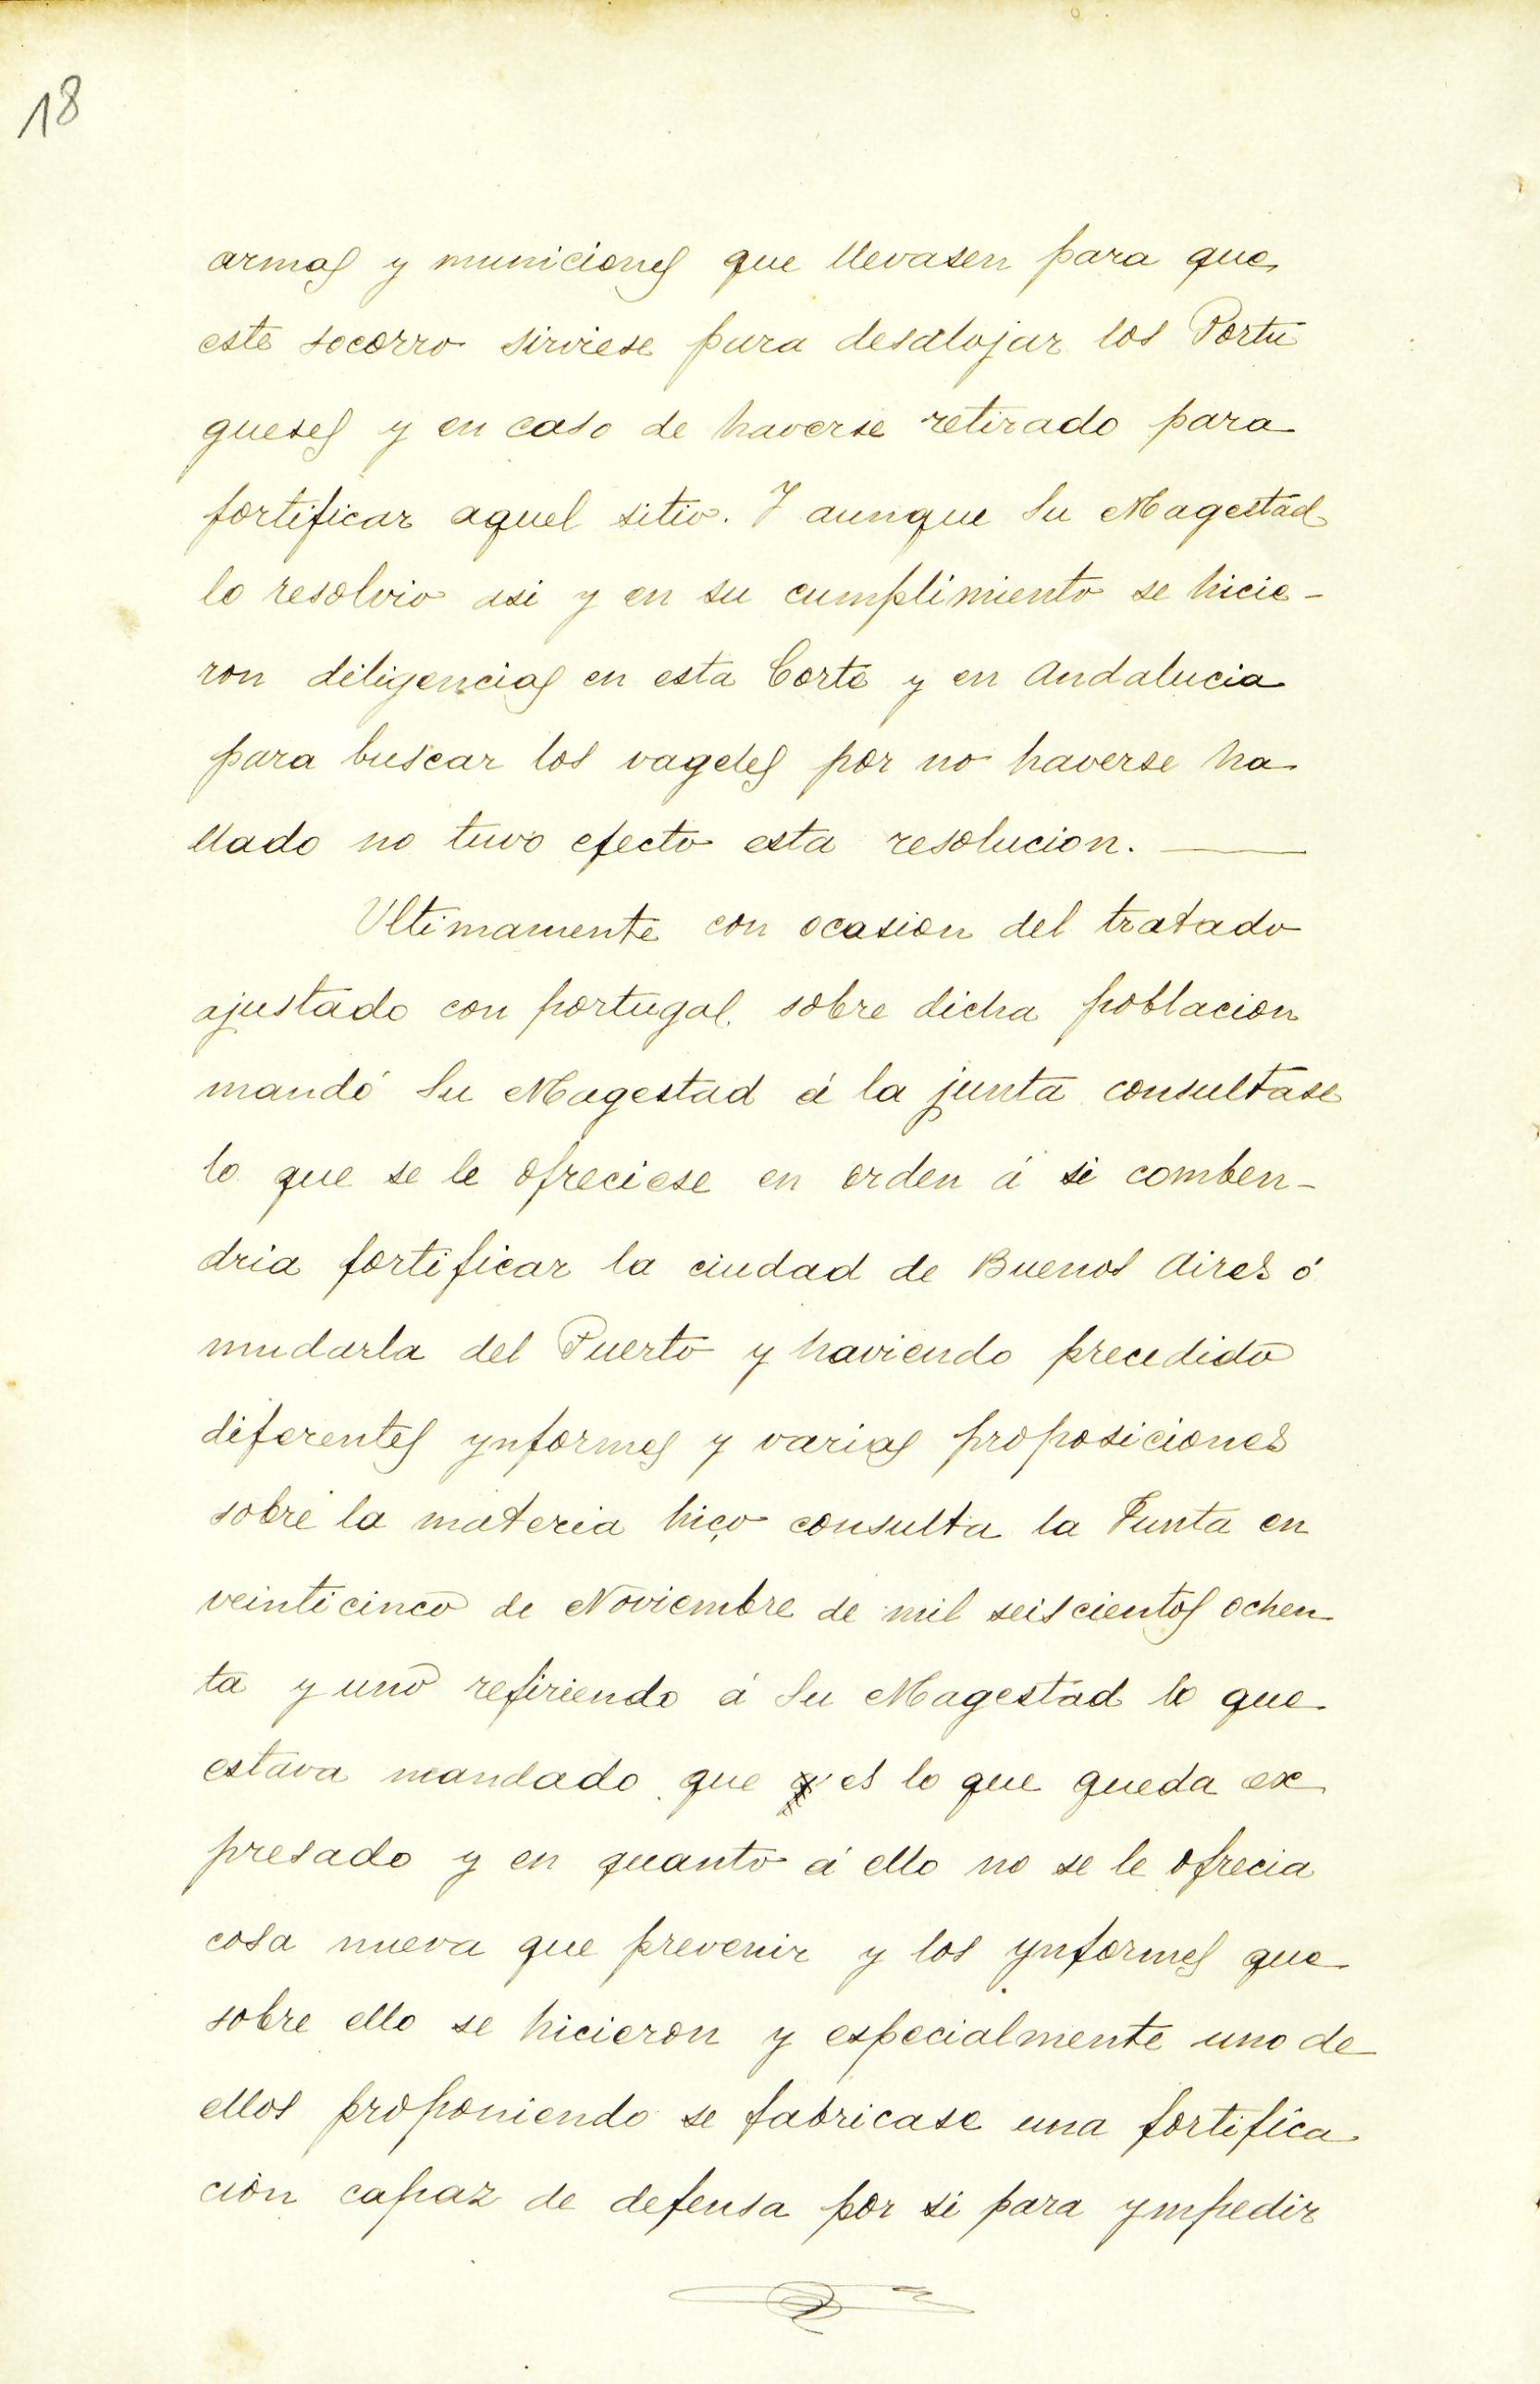 18
armas y municiones que llevasen para que
este socorro sirviese para desalojar los Portu
gueses y en caso de haverse retirado para
fortificar aquel sitio. Y aunque Su Magestad
lo resolvio asi y en su cumplimiento se hicie-
ron diligencias en esta Corte y en Andalucia
para buscar los vageles por no haverse ha
llado no tuvo efecto esta resolucion.
Ultimamente con ocasion del tratado
ajustado con portugal sobre dicha poblacion
mandó Su Magestad á la junta consultase
lo que se le ofreciese en orden á si comben-
dria fortificar la ciudad de Buenos Aires ó
mudarla del Puerto y haviendo precedido
diferentes ynformes y varias proposiciones
sobre la materia hiço consulta la Junta en
veinticinco de Noviembre de mil seiscientos ochen
ta y uno refiriendo á Su Magestad lo que
estava mandado que es lo que queda ex
presado y en quanto á ello no se le ofrecia
cosa nueva que prevenir y los ynformes que
sobre ello se hicieron y especialmente uno de
ellos proponiendo se fabricase una fortifica
cion capaz de defensa por si para ympedir